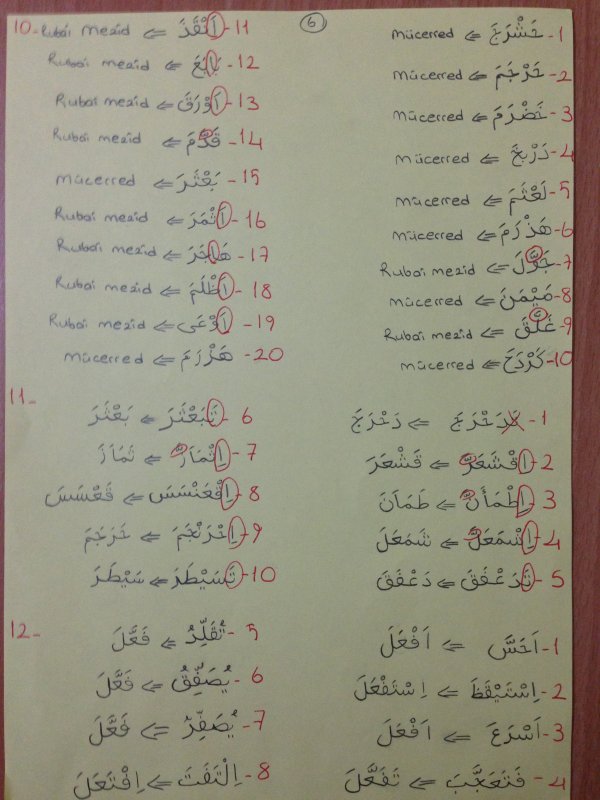 6
10-
1- حَشْرَجَ ⇐ mücerred
2- حَرْجَمَ ⇐ mücerred
3- خَضْرَمَ ⇐ mücerred
4- دَرْبَخَ ⇐ mücerred
5- لَعْثَمَ ⇐ mücerred
6- هَذْرَمَ ⇐ mücerred
7- جَوَّلَ ⇐ Rubai mezid
8- مَيْمَنَ ⇐ mücerred
9- غَلَّقَ ⇐ Rubai mezid
10- كَرْدَحَ ⇐ mücerred
11- اَنْقَذَ ⇐ Rubai mezid
12- بَايَعَ ⇐ Rubai mezid
13- اَوْرَقَ ⇐ Rubai mezid
14- قَدَّمَ ⇐ Rubai mezid
15- بَعْثَرَ ⇐ mücerred
16- اَثْمَرَ ⇐ Rubai mezid
17- هَاجَرَ ⇐ Rubai mezid
18- اَظْلَمَ ⇐ Rubai mezid
19- اَوْعَى ⇐ Rubai mezid
20- هَزْرَمَ ⇐ mücerred
11-
1- تَدَحْرَجَ ⇐ دَحْرَجَ
2- اِقْشَعَرَّ ⇐ قَشْعَرَ
3- اِطْمَأَنَّ ⇐ طَمَاَنَ
4- اِشْمَعَلَّ ⇐ شَمَعَلَ
5- تَدَعْفَقَ ⇐ دَعْفَقَ
6- تَبَعْثَرَ ⇐ بَعْثَرَ
7- اِتْمَاَرَّ ⇐ تَمَاَرَ
8- اِقْعَنْسَسَ ⇐ قَعْسَسَ
9- اِحْرَنْجَمَ ⇐ حَرْجَمَ
10- تَسَيْطَرَ ⇐ سَيْطَرَ
12-
1- اَحَسَّ ⇐ اَفْعَلَ
2- اِسْتَيْقَظَ ⇐ اِسْتَفْعَلَ
3- اَسْرَعَ ⇐ اَفْعَلَ
4- فَتَعَجَّبَ ⇐ تَفَعَّلَ
5- تُقَلِّدُ ⇐ فَعَّلَ
6- يُصَفِّقُ ⇐ فَعَّلَ
7- يُصَفِّرُ ⇐ فَعَّلَ
8- اِلْتَفَتَ ⇐ اِفْتَعَلَ